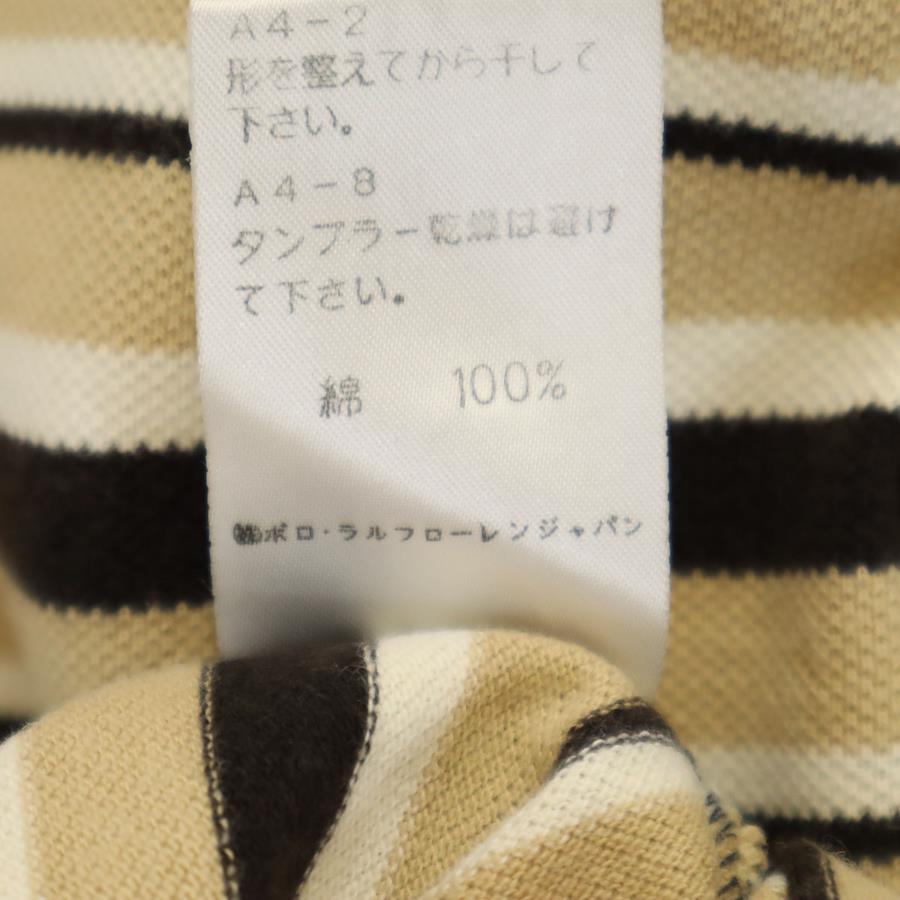 A4-2
形を整えてから干して
下さい。
A4-8
タンブラー乾燥は避け
て下さい。
綿 100%
㈱ポロ・ラルフローレンジャパン